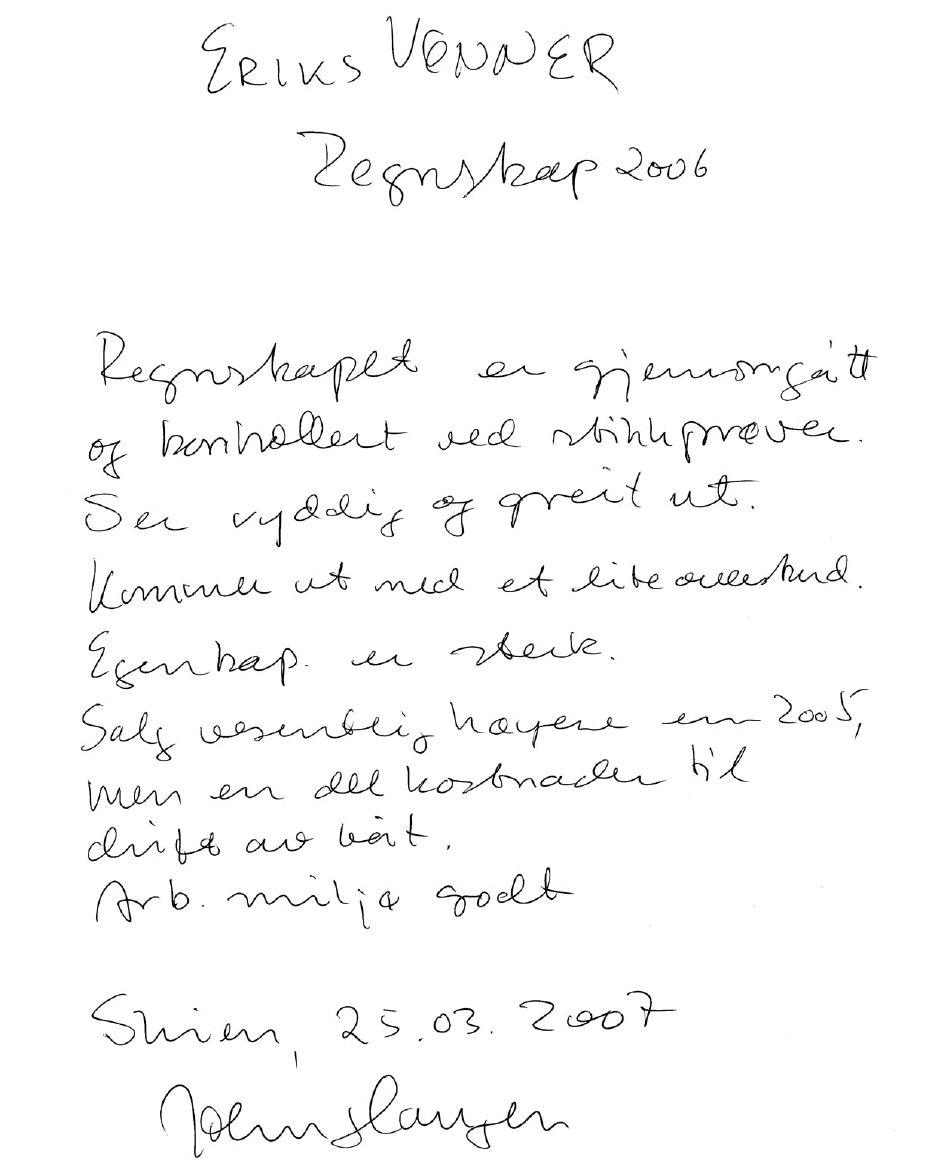 ERIKS VENNER
Regnskap 2006
Regnskapet er gjennomgått
og kontrollert ved stikkprøver.
Ser ryddig og greit ut.
Kommer ut med et lite overskud.
Egenkap. er sterk.
Salg vesentlig høyere enn 2005,
men en del kostnader til
drift av båt.
Arb. miljø godt
Skien, 25.03.2007